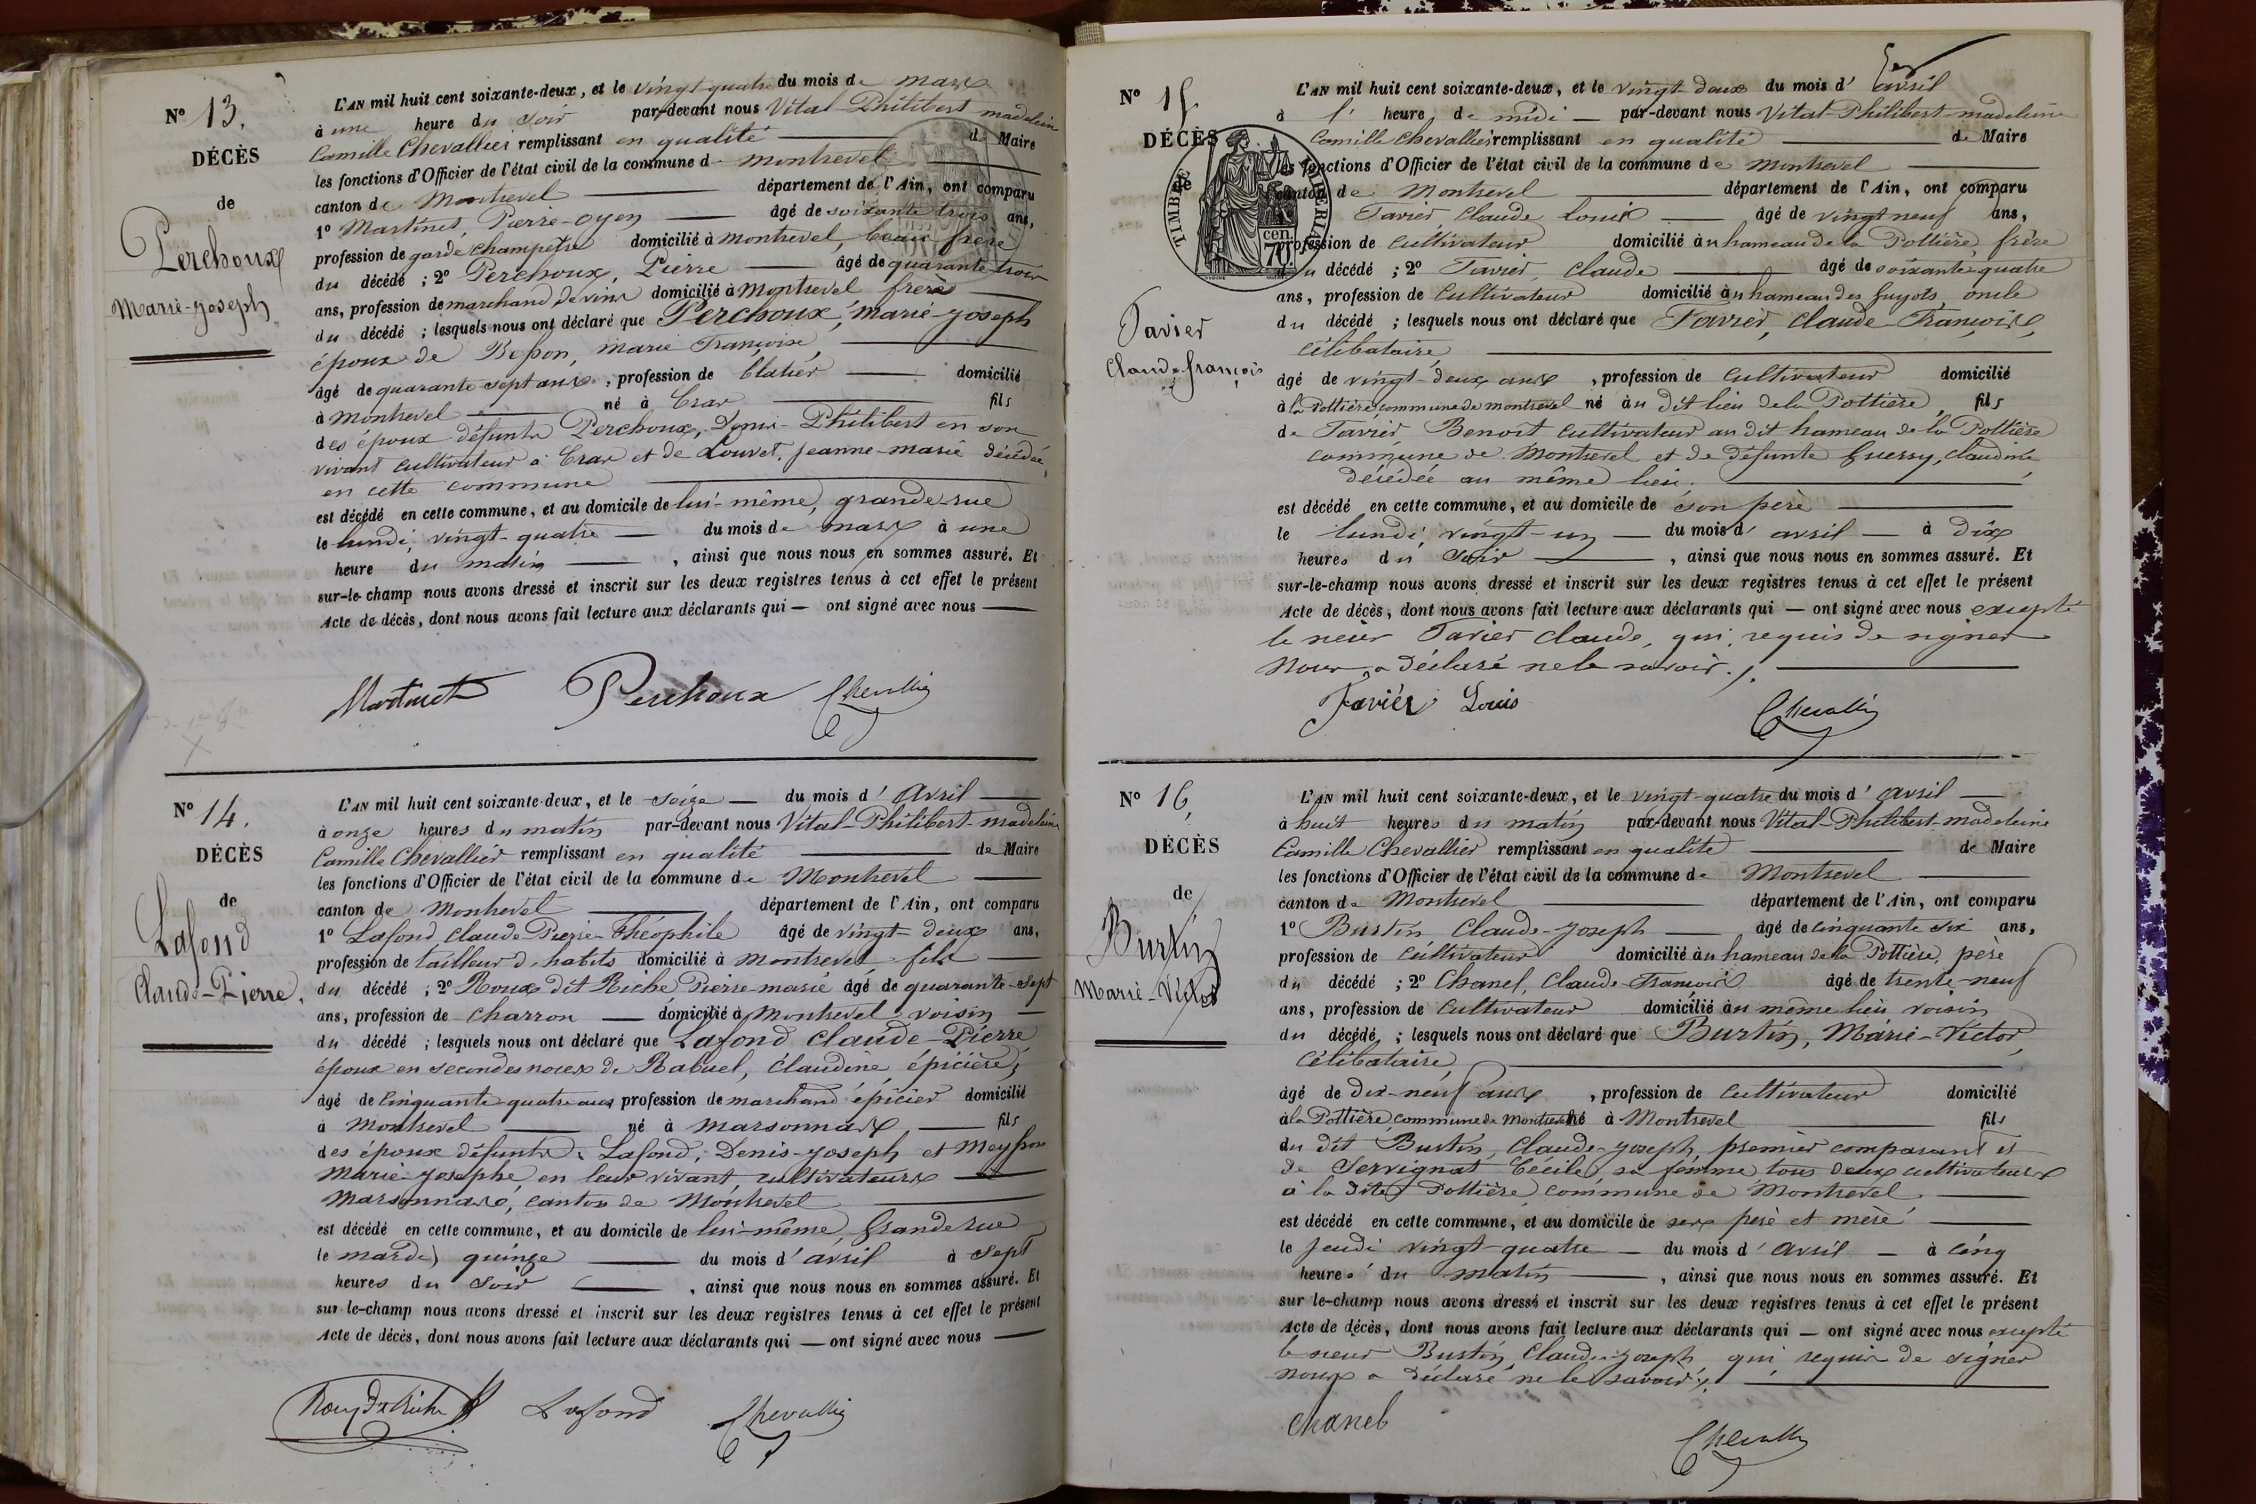 N° 13.
DÉCÈS
de
Perchoux
Marie-Joseph
L'AN mil huit cent soixante-deux, et le vingt-quatre du mois de mars
à une heure du soir par-devant nous Vital-Philibert-madelein
Camille Chevallier remplissant en qualité de Maire
les fonctions d'Officier de l'état civil de la commune de montrevel
canton de Montrevel département de l'Ain, ont comparu
1° Martinet, Pierre-oyen âgé de soixante trois ans,
profession de garde champetre domicilié à montrevel, beau-frère
du décédé ; 2° Perchoux, Pierre âgé de quarante trois
ans, profession de marchand de vins domicilié à Montrevel frère
du décédé ; lesquels nous ont déclaré que Perchoux, marie-joseph
époux de Besson, marie Françoise,
âgé de quarante-sept ans, profession de blatier domicilié
à Montrevel né à Cras fils
des époux défunts Perchoux, Denis-Philibert en son
vivant cultivateur à Cras et de Louvet, jeanne-marie décédée,
en cette commune
est décédé en cette commune, et au domicile de lui-même, grande-rue
le lundi, vingt-quatre du mois de mars à une
heure du matin, ainsi que nous nous en sommes assuré. Et
sur-le-champ nous avons dressé et inscrit sur les deux registres tenus à cet effet le présent
Acte de décès, dont nous avons fait lecture aux déclarants qui — ont signé avec nous —
Martinet Perchoux Chevallier
N° 14.
DÉCÈS
de
Lafond
Claude-Pierre.
L'AN mil huit cent soixante-deux, et le seize du mois d'Avril
à onze heures du matin par-devant nous Vital-Philibert-madeleine
Camille Chevallier remplissant en qualité de Maire
les fonctions d'Officier de l'état civil de la commune de Montrevel
canton de Montrevel département de l'Ain, ont comparu
1° Lafond, Claude-Pierre-Théophile âgé de vingt-deux ans,
profession de tailleur d'habits domicilié à montrevel fils
du décédé ; 2° Roux dit Riche Pierre-marie âgé de quarante-sept
ans, profession de charron domicilié à Montrevel voisin
du décédé ; lesquels nous ont déclaré que Lafond Claude-Pierre
époux en secondes noces de Rabuel, Claudine, épicière,
âgé de cinquante-quatre ans profession de marchand épicier domicilié
à Montrevel né à marsonnas, fils
des époux défunts Lafond, Denis-joseph et Meysson
marie-josephe en leur vivant, cultivateurs
marsonnas, canton de Montrevel
est décédé en cette commune, et au domicile de lui-même, Grande rue
le mardi quinze du mois d'avril à sept
heures du soir, ainsi que nous nous en sommes assuré. Et
sur le-champ nous avons dressé et inscrit sur les deux registres tenus à cet effet le présent
Acte de décès, dont nous avons fait lecture aux déclarants qui — ont signé avec nous —
Roux Dt Riche Lafond Chevallier
N° 15.
DÉCÈS
de
TIMBRE IMPERIAL
70 cen.
Favier
Claude françois
L'AN mil huit cent soixante-deux, et le vingt deux du mois d'avril
à l'heure de midi — par-devant nous Vital-Philibert-madeleine
Camille Chevallier remplissant en qualité de Maire
les fonctions d'Officier de l'état civil de la commune de Montrevel
canton de Montrevel département de l'Ain, ont comparu
Favier Claude Louis âgé de vingt neuf ans,
profession de cultivateur domicilié au hameau de la Pottière frère
du décédé ; 2° Favier, Claude âgé de soixante-quatre
ans, profession de cultivateur domicilié au hameau des guyots, oncle
du décédé ; lesquels nous ont déclaré que Favier, Claude-François,
célibataire
âgé de vingt-deux ans, profession de cultivateur domicilié
à la Pottière commune de montrevel né au dit lieu de la Pottière, fils
de Favier Benoit cultivateur au dit hameau de la Pottière
commune de Montrevel et de défunte Guerry, claudine
décédée au même lieu.
est décédé en cette commune, et au domicile de son père
le lundi vingt-un du mois d'avril — à dix
heures du soir, ainsi que nous nous en sommes assuré. Et
sur-le-champ nous avons dressé et inscrit sur les deux registres tenus à cet effet le présent
Acte de décès, dont nous avons fait lecture aux déclarants qui — ont signé avec nous excepté
le sieur Favier Claude, qui, requis de signer
nous a déclaré ne le savoir.
Favier Louis Chevallier
N° 16
DÉCÈS
de
Burtin
Marie-Victor
L'AN mil huit cent soixante-deux, et le vingt-quatre du mois d'avril
à huit heures du matin par-devant nous Vital-Philibert-madeleine
Camille Chevallier remplissant en qualité de Maire
les fonctions d'Officier de l'état civil de la commune de Montrevel
canton de Montrevel département de l'Ain, ont comparu
1° Burtin Claude-joseph âgé de cinquante six ans,
profession de cultivateur domicilié au hameau de la Pottière, père
du décédé ; 2° Chanel, Claude-François âgé de trente-neuf
ans, profession de cultivateur domicilié au même lieu voisin
du décédé ; lesquels nous ont déclaré que Burtin, Marie-Victor,
célibataire,
âgé de dix-neuf ans, profession de cultivateur domicilié
à la Pottière, commune de Montrevel né à Montrevel fils
du dit Burtin, Claude-joseph, premier comparant et
de Servignat Cécile sa femme tous deux cultivateurs
à la dite Pottière commune de Montrevel.
est décédé en cette commune, et au domicile de ses père et mère
le jeudi vingt-quatre du mois d'avril — à cinq
heures du matin, ainsi que nous nous en sommes assuré. Et
sur le-champ nous avons dressé et inscrit sur les deux registres tenus à cet effet le présent
Acte de décès, dont nous avons fait lecture aux déclarants qui — ont signé avec nous excepté
le sieur Burtin Claude-joseph qui requis de signer
nous a déclaré ne le savoir.
Chanel Chevallier